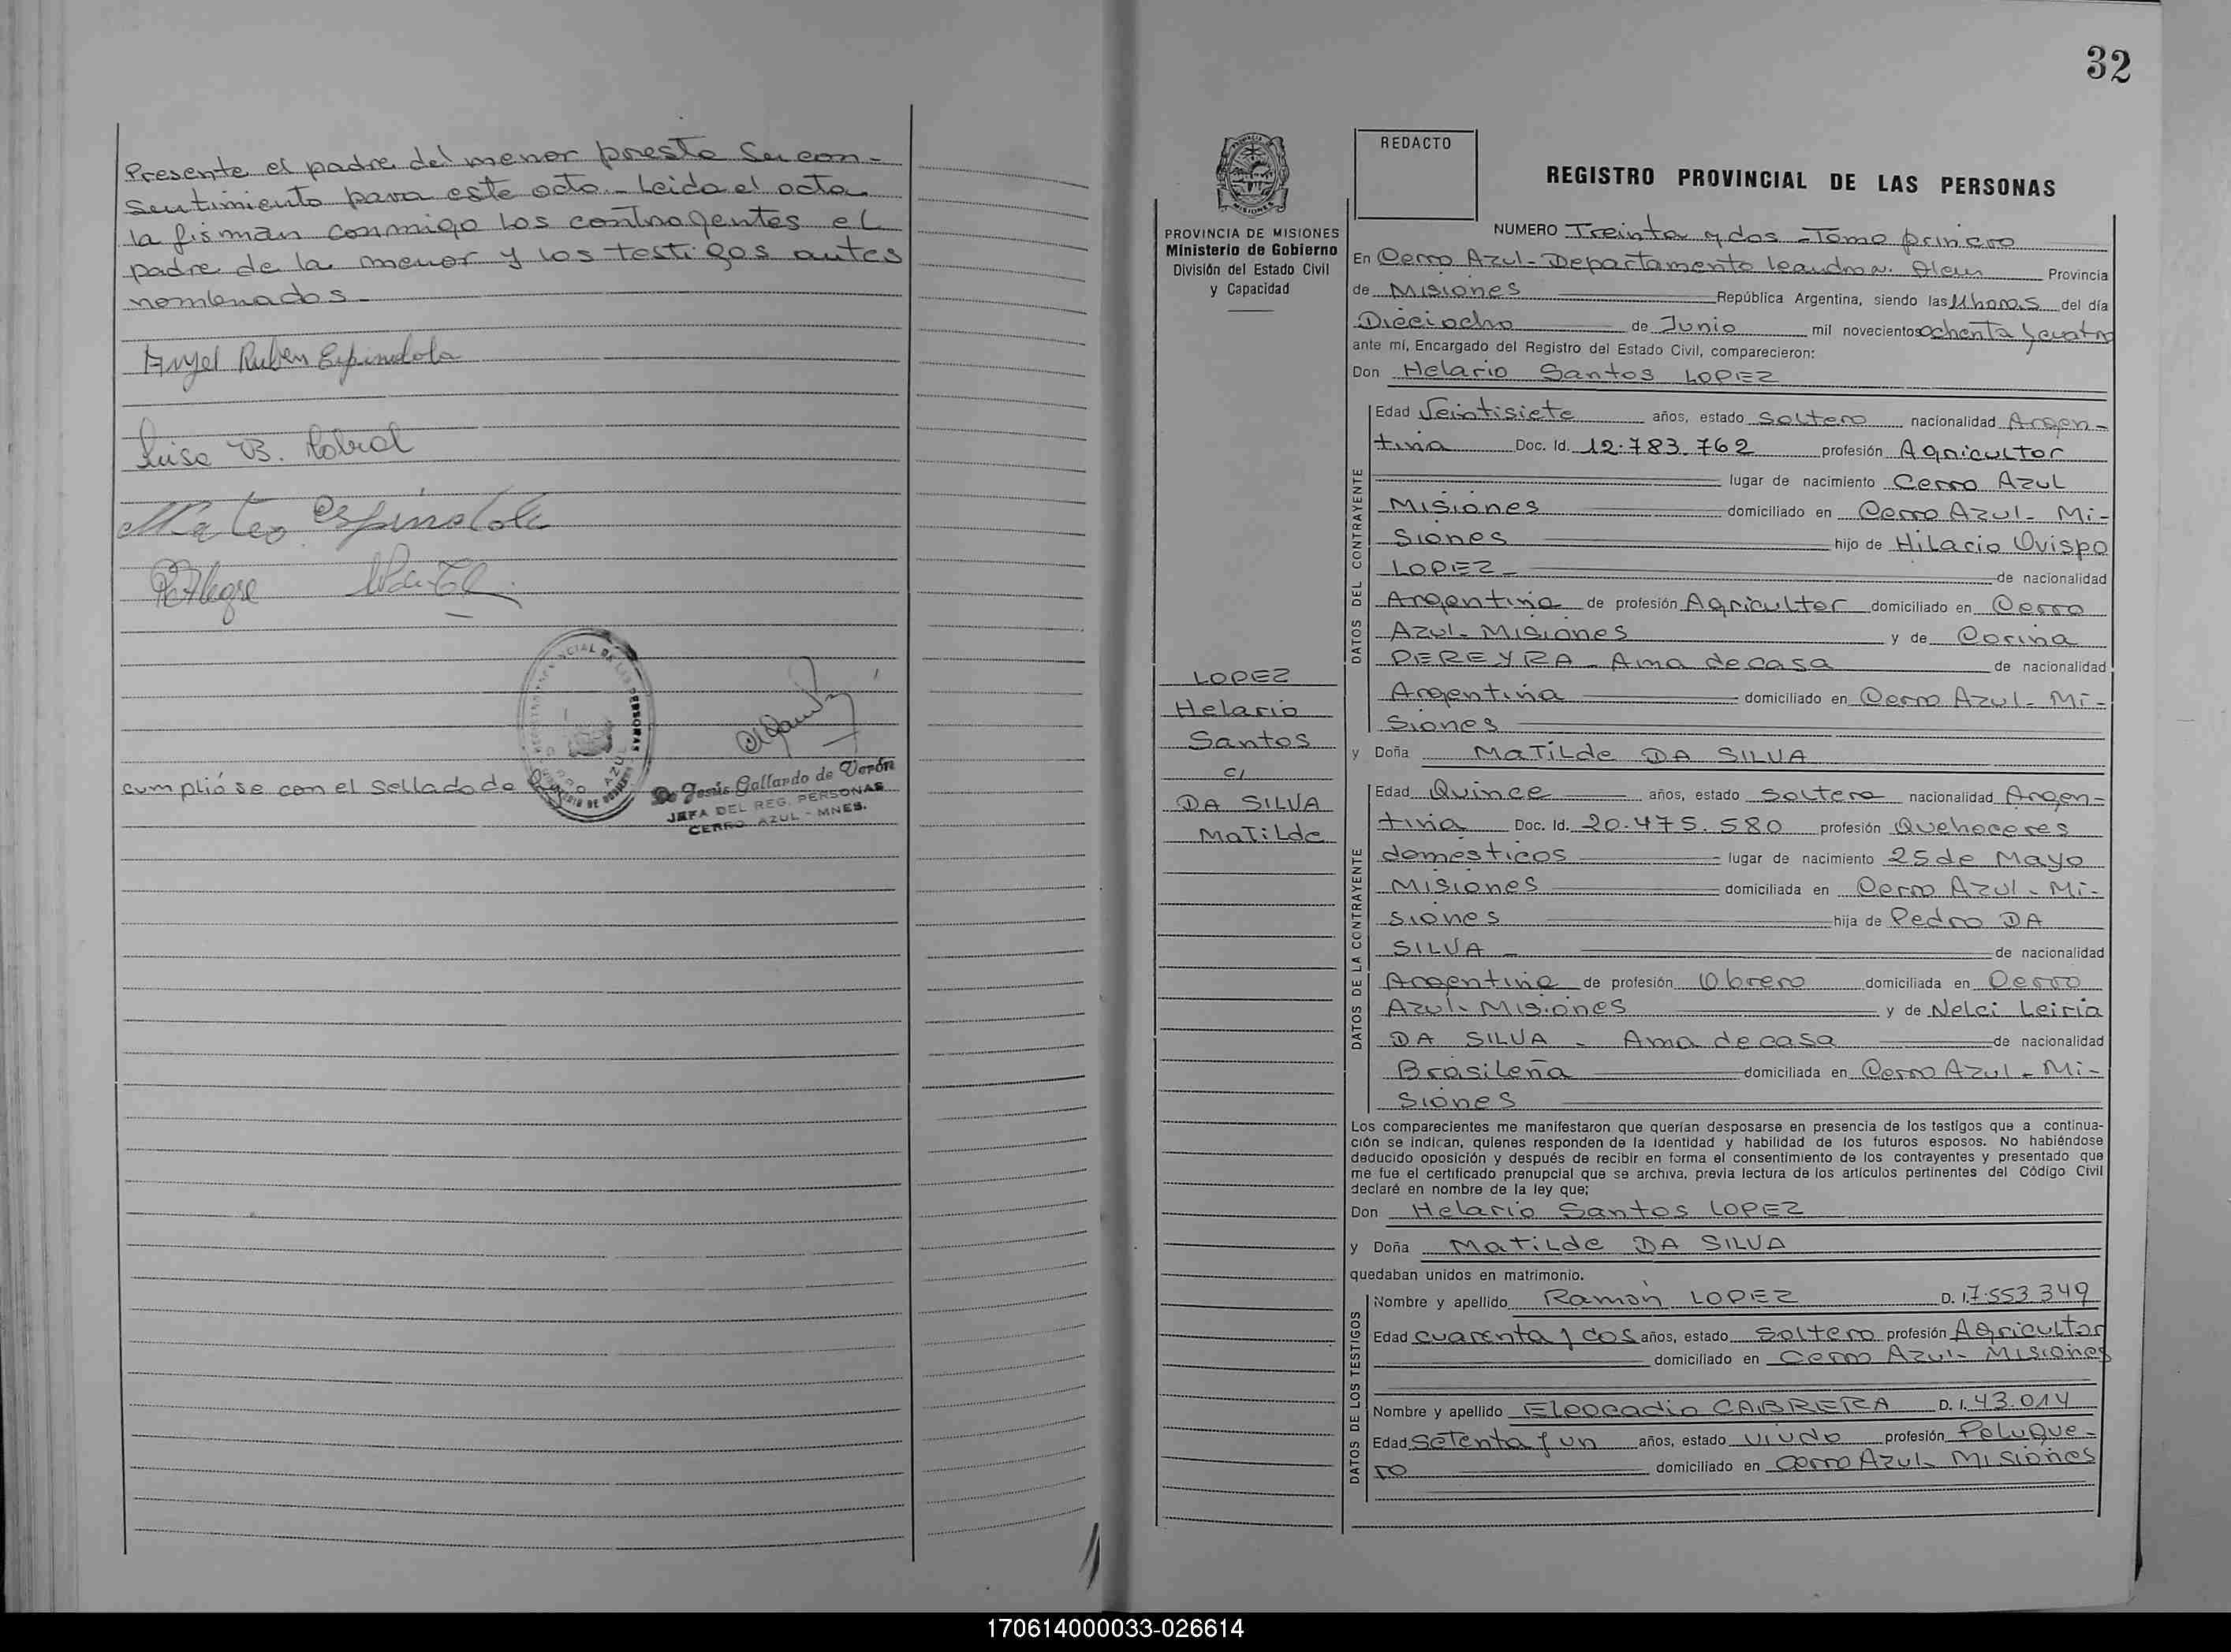 Presente el padre del menor presta su con-
sentimiento para este acto - Leida el acta
la firman conmigo los contragentes el
padre de la menor y los testigos antes
nombrados -
Angel Ruben Espindola
Luisa B. Cobral
Mateo Espindola
PEAlegre
REGISTRO PROVINCIAL DE LAS PERSONAS
cumplióse con el sellado de
De Jesús Gallardo de Verón
JEFA DEL REG. PERSONAS
CERRO AZUL - MNES.
32
PROVINCIA DE MISIONES
Ministerio de Gobierno
División del Estado Civil
y Capacidad
LOPEZ
Helario
Santos
c/
DA SILVA
Matilde
REDACTO
REGISTRO PROVINCIAL DE LAS PERSONAS
NUMERO Treinta y dos - Tomo primero
En Cerro Azul - Departamento Leandro N. Alem Provincia
de Misiones República Argentina, siendo las 11 horas del día
Dieciocho de Junio mil novecientos ochenta y cuatro
ante mí, Encargado del Registro del Estado Civil, comparecieron:
Don Helario Santos LOPEZ
DATOS DEL CONTRAYENTE
Edad Veintisiete años, estado Soltero nacionalidad Argen-
tina Doc. Id. 12.783.762 profesión Agricultor
lugar de nacimiento Cerro Azul
Misiones domiciliado en Cerro Azul - Mi-
siones hijo de Hilario Ovispo
LOPEZ - de nacionalidad
Argentina de profesión Agricultor domiciliado en Cerro
Azul - Misiones y de Corina
PEREYRA - Ama de casa de nacionalidad
Argentina domiciliado en Cerro Azul - Mi-
siones
y Doña Matilde DA SILVA
DATOS DE LA CONTRAYENTE
Edad Quince años, estado Soltera nacionalidad Argen-
tina Doc. Id. 20.475.580 profesión Quehaceres
domésticos lugar de nacimiento 25 de Mayo
Misiones domiciliada en Cerro Azul - Mi-
siones hija de Pedro DA
SILVA - de nacionalidad
Argentina de profesión Obrero domiciliada en Cerro
Azul - Misiones y de Nelci Leiria
DA SILVA - Ama de casa de nacionalidad
Brasileña domiciliada en Cerro Azul - Mi-
siones
Los comparecientes me manifestaron que querían desposarse en presencia de los testigos que a continua-
ción se indican, quienes responden de la identidad y habilidad de los futuros esposos. No habiéndose
deducido oposición y después de recibir en forma el consentimiento de los contrayentes y presentado que
me fue el certificado prenupcial que se archiva, previa lectura de los artículos pertinentes del Código Civil
declaré en nombre de la ley que:
Don Helario Santos LOPEZ
y Doña Matilde DA SILVA
quedaban unidos en matrimonio.
DATOS DE LOS TESTIGOS
Nombre y apellido Ramón LOPEZ D. I. 7.553.349
Edad cuarenta y dos años, estado Soltero profesión Agricultor
domiciliado en Cerro Azul - Misiones
Nombre y apellido Eleocadio CABRERA D. I. 43.014
Edad Setenta y un años, estado viudo profesión Peluque-
ro domiciliado en Cerro Azul - Misiones
170614000033-026614